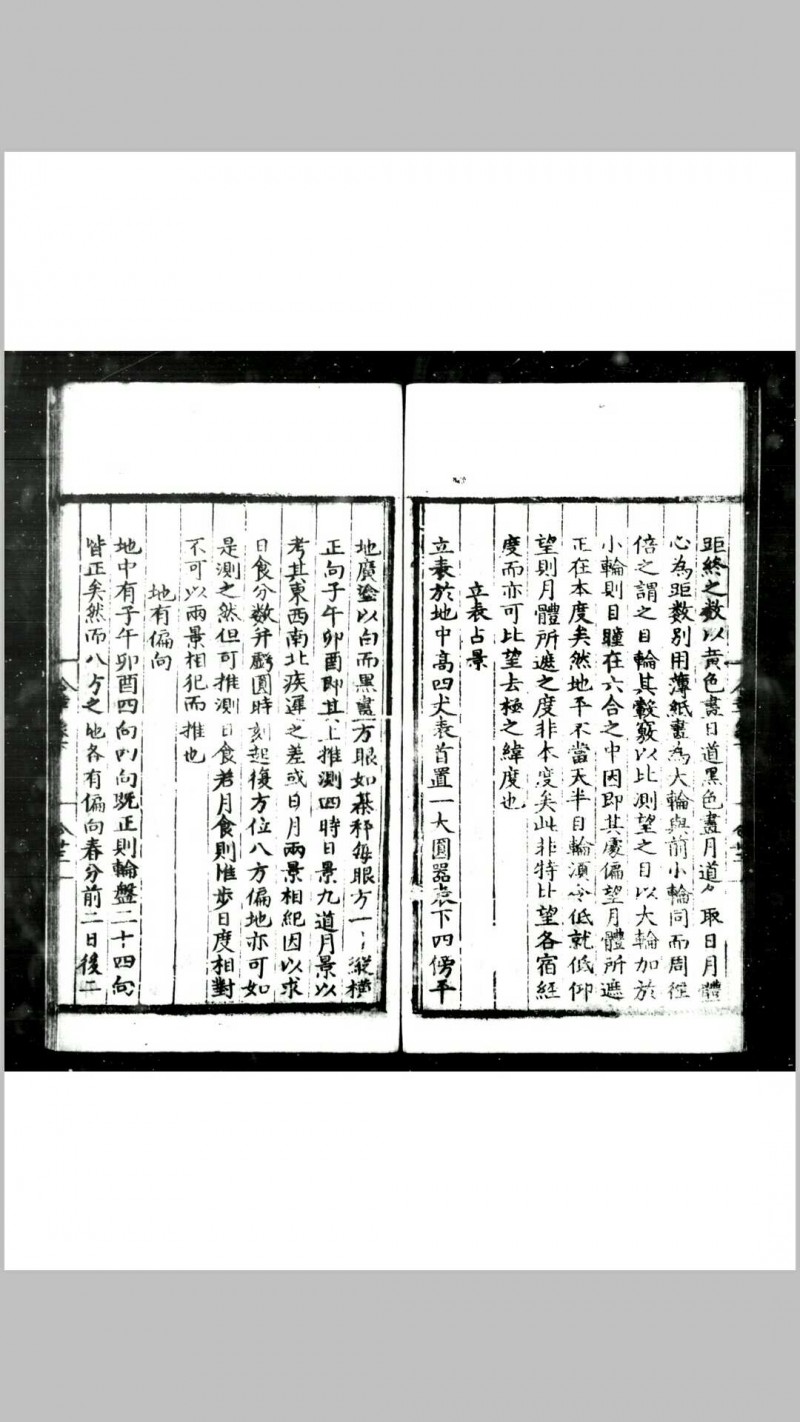 距終之数以黃色畫日道黑色畫月道々取日月體
心為距数別用薄紙畫為大輪與前小輪同而周徑
倍之謂之目輪其轂竅以比測望之目以大輪加於
小輪則目瞳在六合之中因即其處偏望月體所遮
正在本度矣然地平不當天半目輪湏令低就低仰
望則月體所遮之度非本度矣此非特比望各宿經
度而亦可比望去極之緯度也
立表占景
立表於地中高四丈表首置一大圓器表下四傍平
地廣塗以白而黑畫方眼如棊枰每眼方一縱橫
正向子午卯酉即其上推測四時日景九道月景以
考其東西南北疾遲之差或日月兩景相紀因以求
日食分数并虧圓時刻起復方位八方偏地亦可如
是測之然但可推測日食若月食則惟步日度相對
不可以兩景相犯而推也
地有偏向
地中有子午卯酉四向四向既正則輪盤二十四向
皆正矣然而八方之地各有偏向春分前二日後二